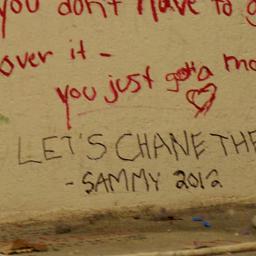 you don't have to g
over it -
you just gotta mo
LET'S CHANE THE
- SAMMY 2012